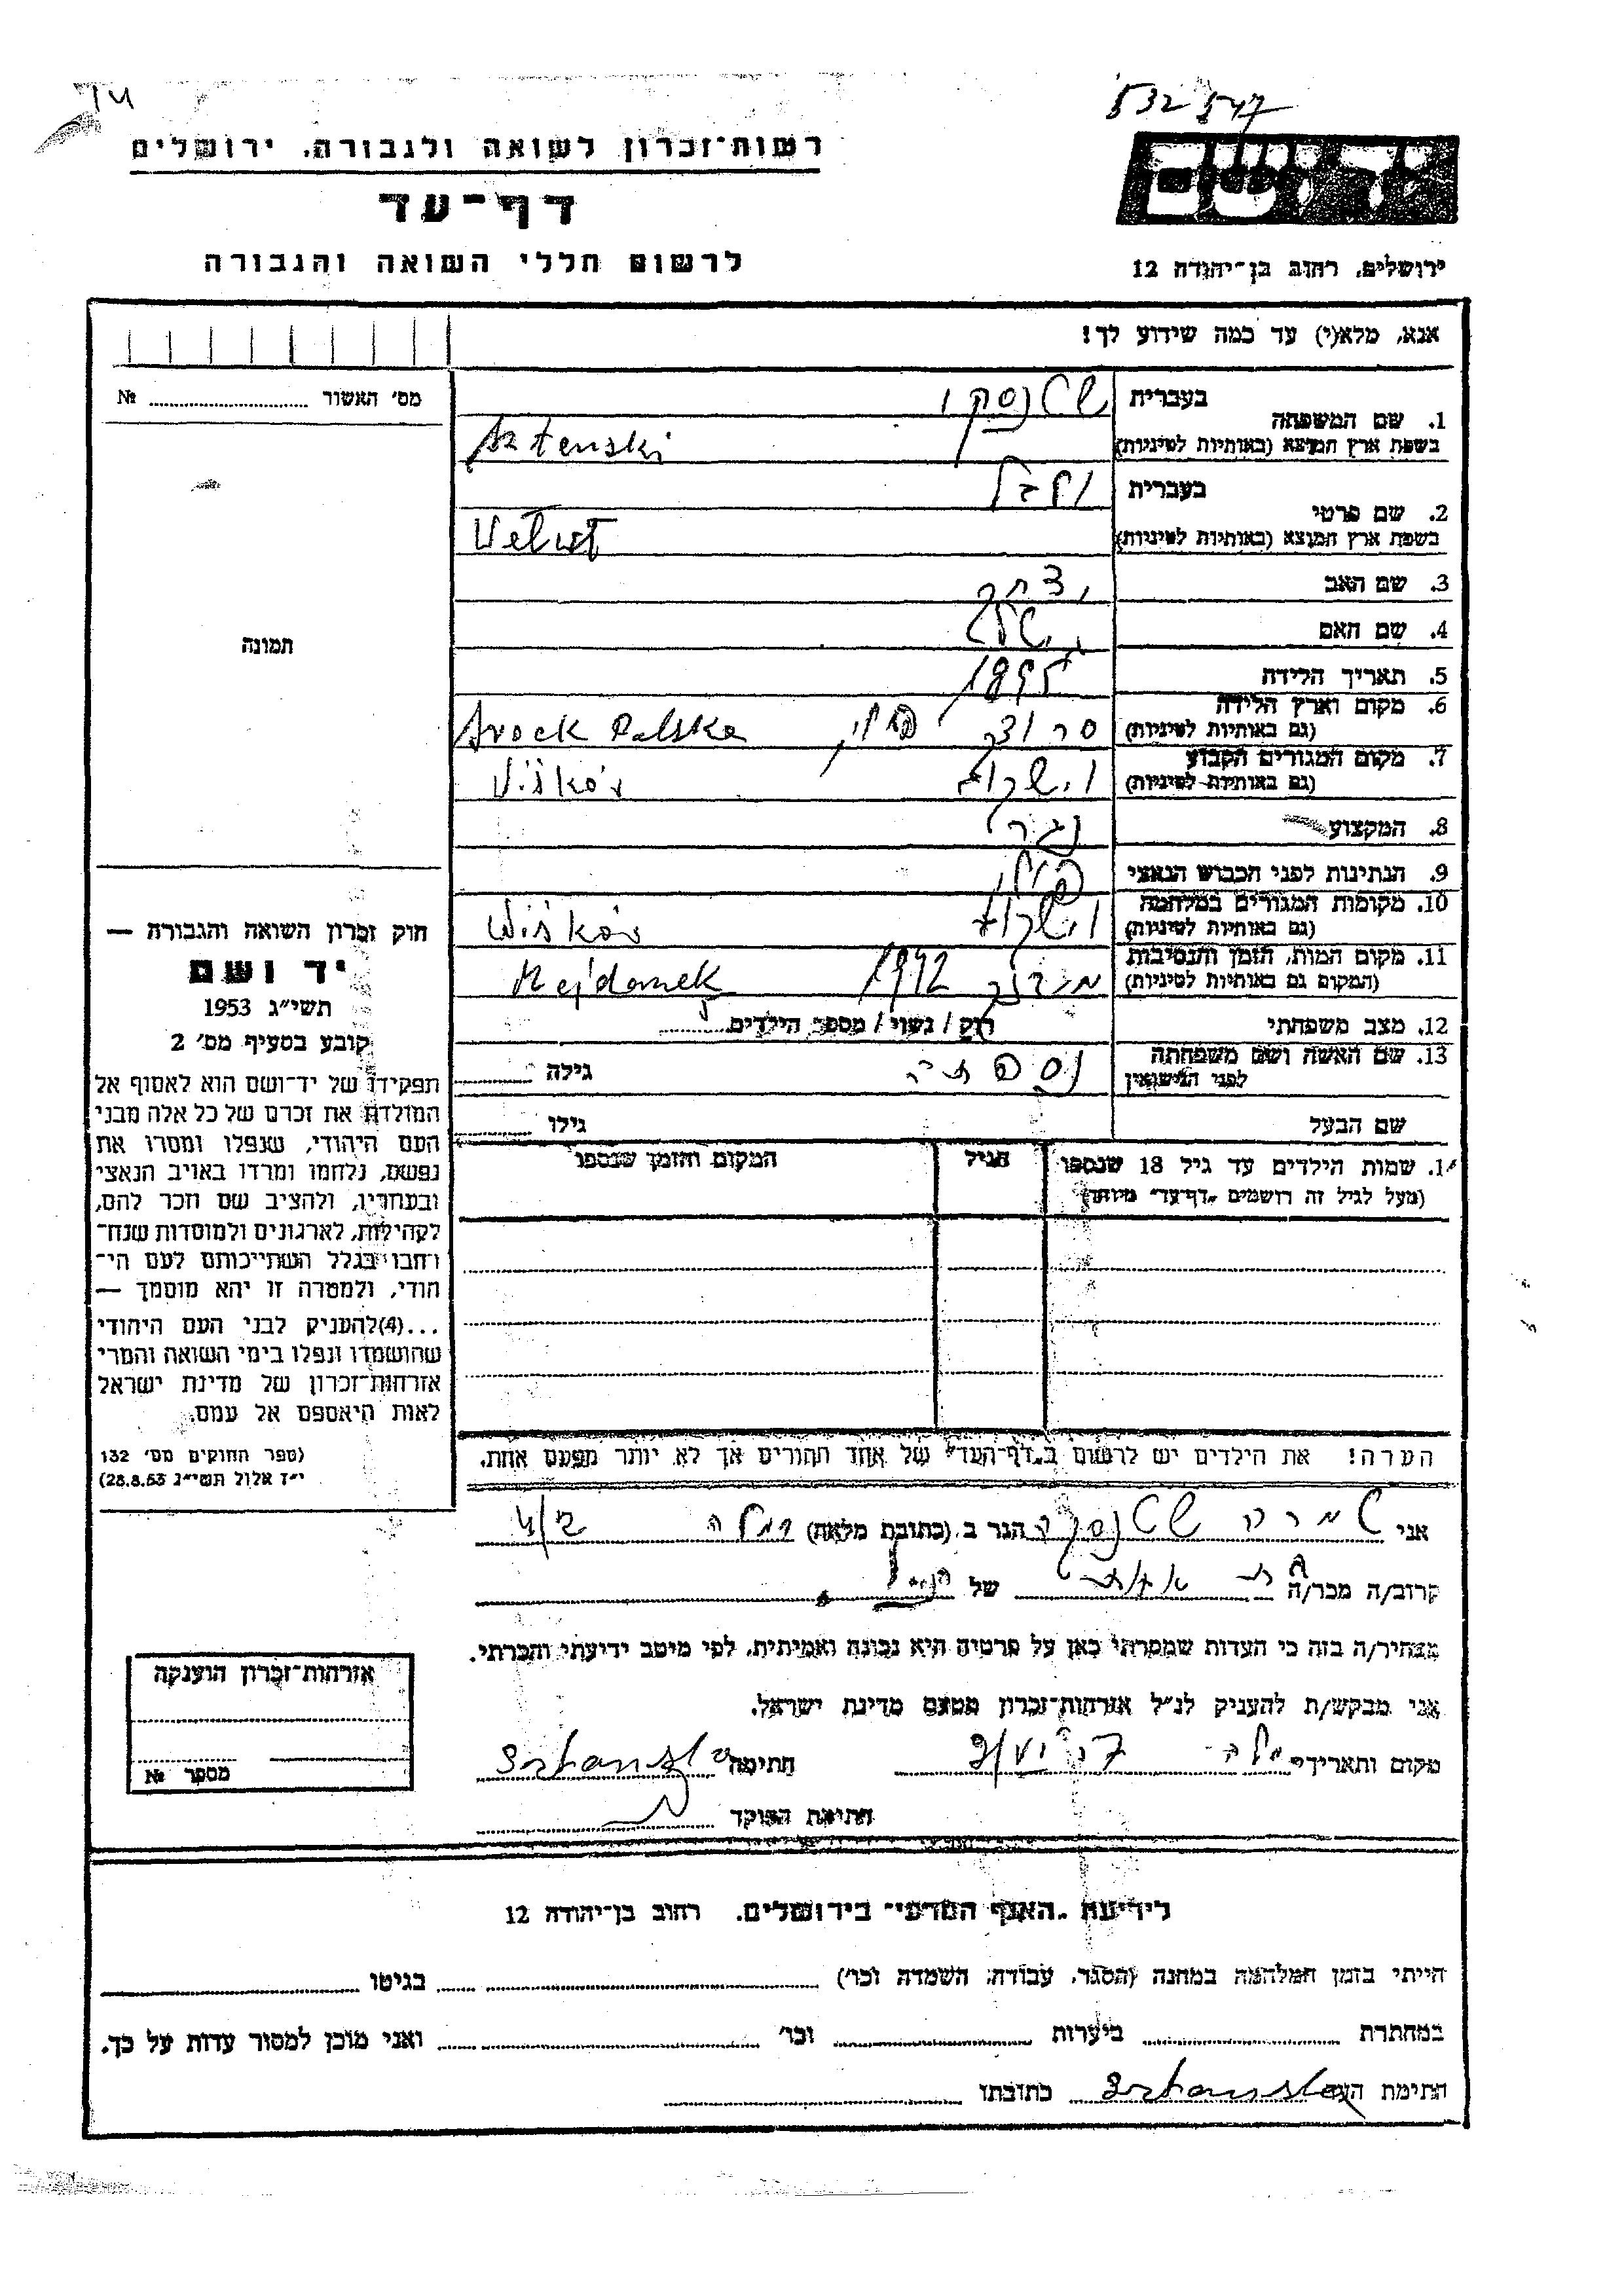 532547
רשות־זכרון לשואה ולגבורה, ירושלים
דף־עד
לרשום חללי השואה והגבורה
ירושלים, רחוב בן־יהודה 12
אנא, מלא(י) עד כמה שידוע לך!
מס׳ האשור № 
1. שם המשפחה
בעברית שטנסקי
בשפת ארץ המוצא (באותיות לטיניות) Sztenski
2. שם פרטי
בעברית
בשפת ארץ המוצא (באותיות לטיניות)
3. שם האב יצחק
4. שם האם
5. תאריך הלידה 1895
6. מקום וארץ הלידה
(גם באותיות לטיניות) סרוצק פולין Srock Polska
7. מקום המגורים הקבוע
(גם באותיות לטיניות) וישקוב Viškóv
8. המקצוע נגר
9. הנתינות לפני הכבוש הנאצי פולני
10. מקומות המגורים במלחמה
(גם באותיות לטיניות) וישקוב Wiškóv
11. מקום המות, הזמן והנסיבות
(המקום גם באותיות לטיניות) מיידנק 1942 Majdanek
12. מצב משפחתי רווק / נשוי / מספר הילדים
13. שם האשה ושם משפחתה
לפני הנישואין
גילה
שם הבעל
גילו
תמונה
חוק זכרון השואה והגבורה —
יד ושם
תשי״ג 1953
קובע בסעיף מס׳ 2
תפקידו של יד־ושם הוא לאסוף אל
המולדת את זכרם של כל אלה מבני
העם היהודי, שנפלו ומסרו את
נפשם, נלחמו ומרדו באויב הנאצי
ובעוזריו, ולהציב שם וזכר להם,
לקהילות, לארגונים ולמוסדות שנח־
רבו בגלל השתייכותם לעם הי־
הודי, ולמטרה זו יהא מוסמך —
...(4)להעניק לבני העם היהודי
שהושמדו ונפלו בימי השואה והמרי
אזרחות־זכרון של מדינת ישראל
לאות היאספם אל עמם.
(ספר החוקים מס׳ 132
י״ז אלול תשי״ג 28.8.53)
שמות הילדים עד גיל 18 שנספו
(מעל לגיל זה רושמים „דף־עד״ מיוחד)
הגיל
המקום והזמן שנספו
הערה! את הילדים יש לרשום ב„דף־העד״ של אחד ההורים אך לא יותר מפעם אחת.
אני שרה שטנסקי הגר ב (כתובת מלאה) רמלה
קרוב/ה מכר/ה של
מצהיר/ה בזה כי העדות שמסרתי כאן על פרטיה היא נכונה ואמיתית, לפי מיטב ידיעתי והכרתי.
אני מבקש/ת להעניק לנ״ל אזרחות־זכרון מטעם מדינת ישראל.
מקום ותאריך חתימה
חתימת הפוקד
אזרחות־זכרון הוענקה
מספר №
לידיעת „האגף המדעי״ בירושלים, רחוב בן־יהודה 12
הייתי בזמן המלחמה במחנה (הסגר, עבודה, השמדה וכו׳) בגיטו
במחתרת ביערות וכו׳ ואני מוכן למסור עדות על כך.
חתימת העד כתובתו